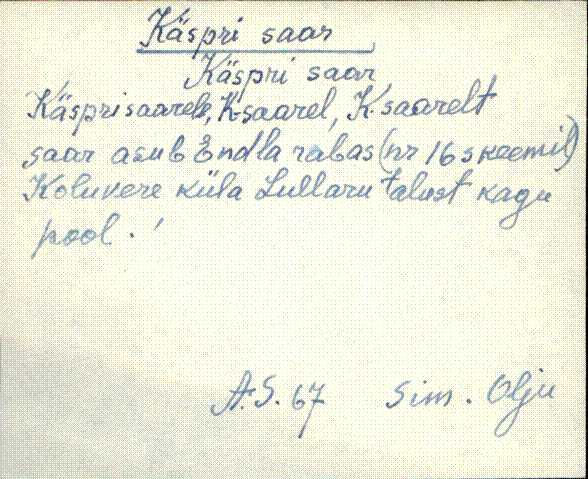 Käspri saar
Käspri saar
Käspri saarele, K-saarel, K.saarelt
saar asub Endla rabas (nr 16 skeemil)
Koluvere küla Lullaru talust kagu
pool.
A.S. 67 Sim. Olju